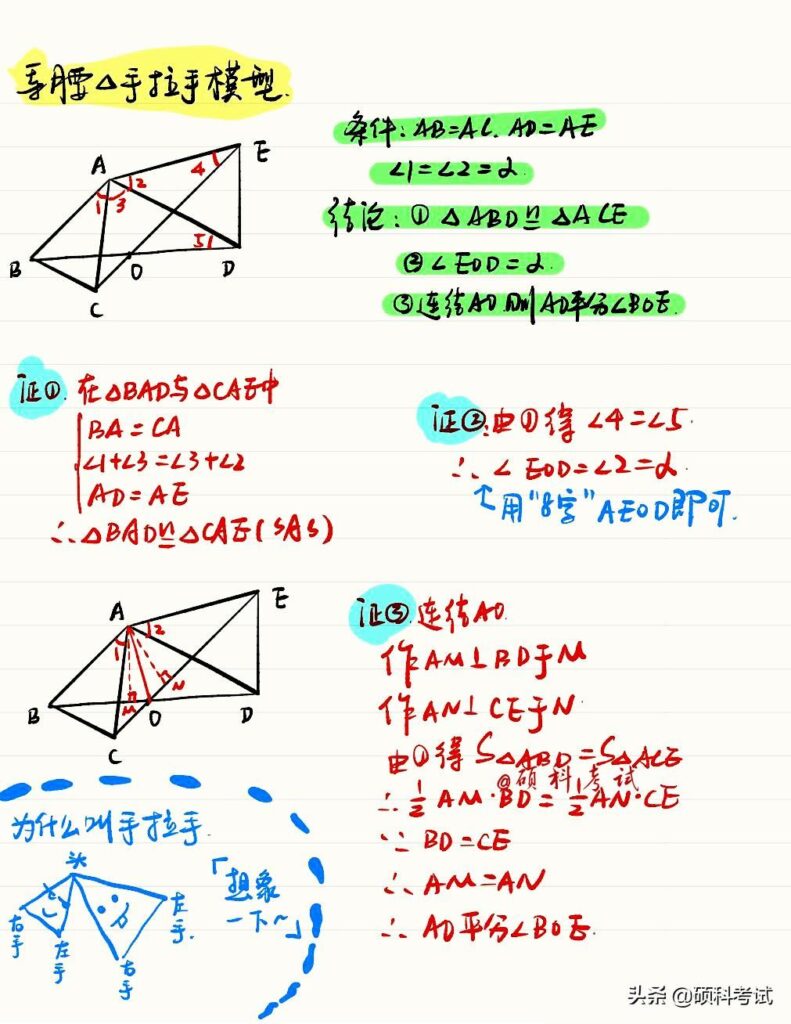 等腰△手拉手模型.
条件: AB=AC. AD=AE
∠1=∠2=α
结论: ① △ABD≌△ACE
② ∠EOD=α.
③ 连结AO, 则AO平分∠BOE.
A
E
B
C
O
D
1
3
2
4
5
证①. 在△BAD与△CAE中
BA=CA
∠1+∠3=∠3+∠2
AD=AE
∴△BAD≌△CAE(SAS)
证②:由①得 ∠4=∠5.
∴∠EOD=∠2=α.
↑用"8字"AEOD即可.
A
E
B
C
O
D
1
2
M
N
证③.连结AO.
作AM⊥BD于M
作AN⊥CE于N
由①得 S△ABD=S△ACE
@硕科考试
∴ 1/2 AM·BD=1/2 AN·CE
∵ BD=CE
∴ AM=AN
∴ AO平分∠BOE.
为什么叫手拉手.
头
右手
左手
右手
左手.
「想象一下~」
头条 @硕科考试